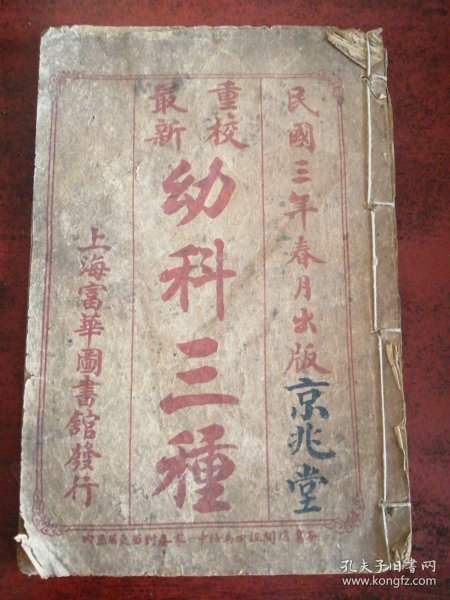 民國三年春月出版
京兆堂
重校
最新
幼科三種
上海富華圖書館發行
孔夫子旧书网
www.kongfz.com